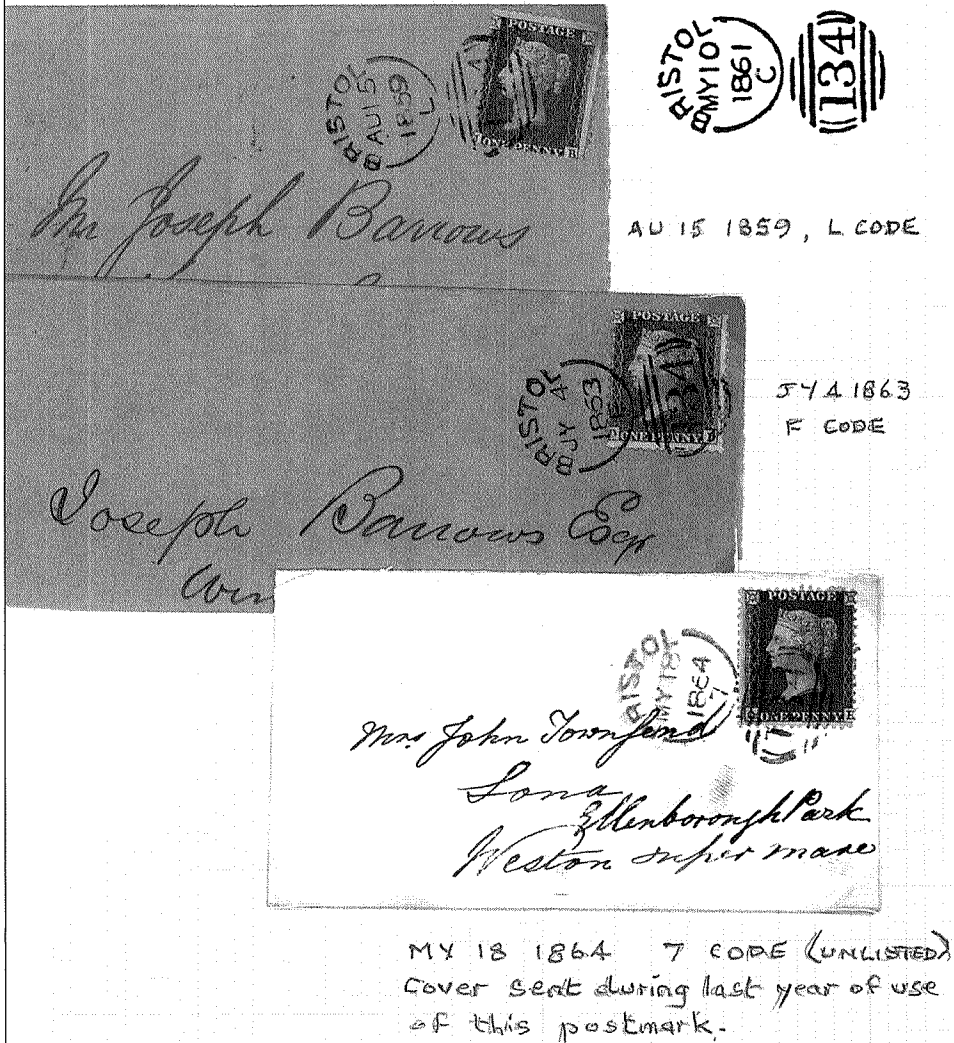 BRISTOL
MY 10
1861
C
134
POSTAGE
BRISTOL
AU 15
1859
L
ONE PENNY
Mr Joseph Barrows
AU 15 1859, L CODE
POSTAGE
BRISTOL
JY 4
1863
F
134
ONE PENNY
JY 4 1863
F CODE
Joseph Barrows Esqr
POSTAGE
BRISTOL
MY 18
1864
7
ONE PENNY
Mrs John Townsend
Ellenborough Park
Weston super mare
MY 18 1864 7 CODE (UNLISTED)
Cover sent during last year of use
of this postmark.